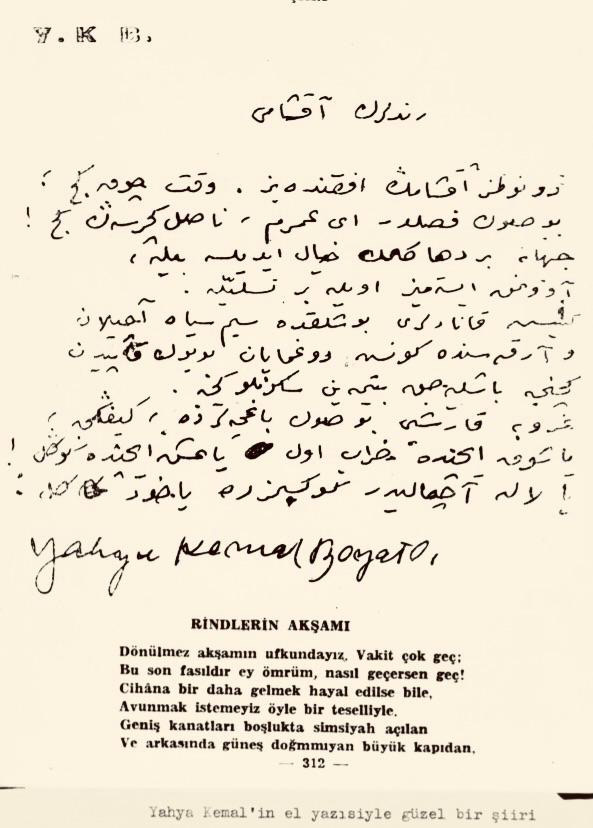 Y. K B.
رندلرك آقشامى
دونولمز آقشامك افقنده يز . وقت چوق گچ ؛
بو صوك فصلدر اى عمرم ، ناصل گچرسه ڭ گچ !
جهانه بر دها گلمك خيال ايديلسه بيله ،
آوونمق ايسته ميز اويله بر تسلّيله .
قانادلرى بوشلقده سيم سياه آچيلان
و آرقه سنده گونش دوغمايان بويوك قاپيدن
گچنجه باشلايه جق بيتمه ين سكونلو گجه .
غروبه قارشى بو صوك باغچه لرده ، كيفڭجه ،
يا شوق ايچنده خراب اول يا عشق ايچنده گوڭل !
يا لاله آچماليدر گوگسمزده ياخود گل .
Yahya Kemal Beyatlı,
RİNDLERİN AKŞAMI
Dönülmez akşamın ufkundayız. Vakit çok geç;
Bu son fasıldır ey ömrüm, nasıl geçersen geç!
Cihâna bir daha gelmek hayal edilse bile,
Avunmak istemeyiz öyle bir teselliyle.
Geniş kanatları boşlukta simsiyah açılan
Ve arkasında güneş doğmmıyan büyük kapıdan.
— 312 —
Yahya Kemal'in el yazısiyle güzel bir şiiri